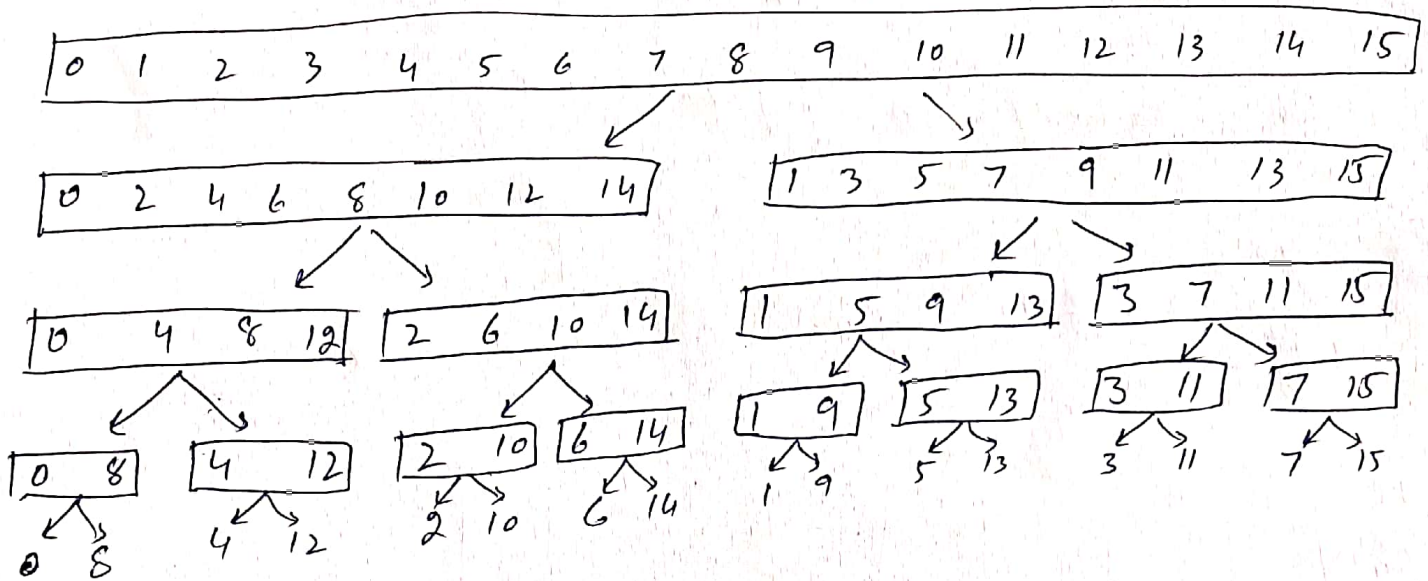 0 1 2 3 4 5 6 7 8 9 10 11 12 13 14 15
0 2 4 6 8 10 12 14 1 3 5 7 9 11 13 15
0 4 8 12 2 6 10 14 1 5 9 13 3 7 11 15
0 8 4 12 2 10 6 14 1 9 5 13 3 11 7 15
0 8 4 12 2 10 6 14 1 9 5 13 3 11 7 15